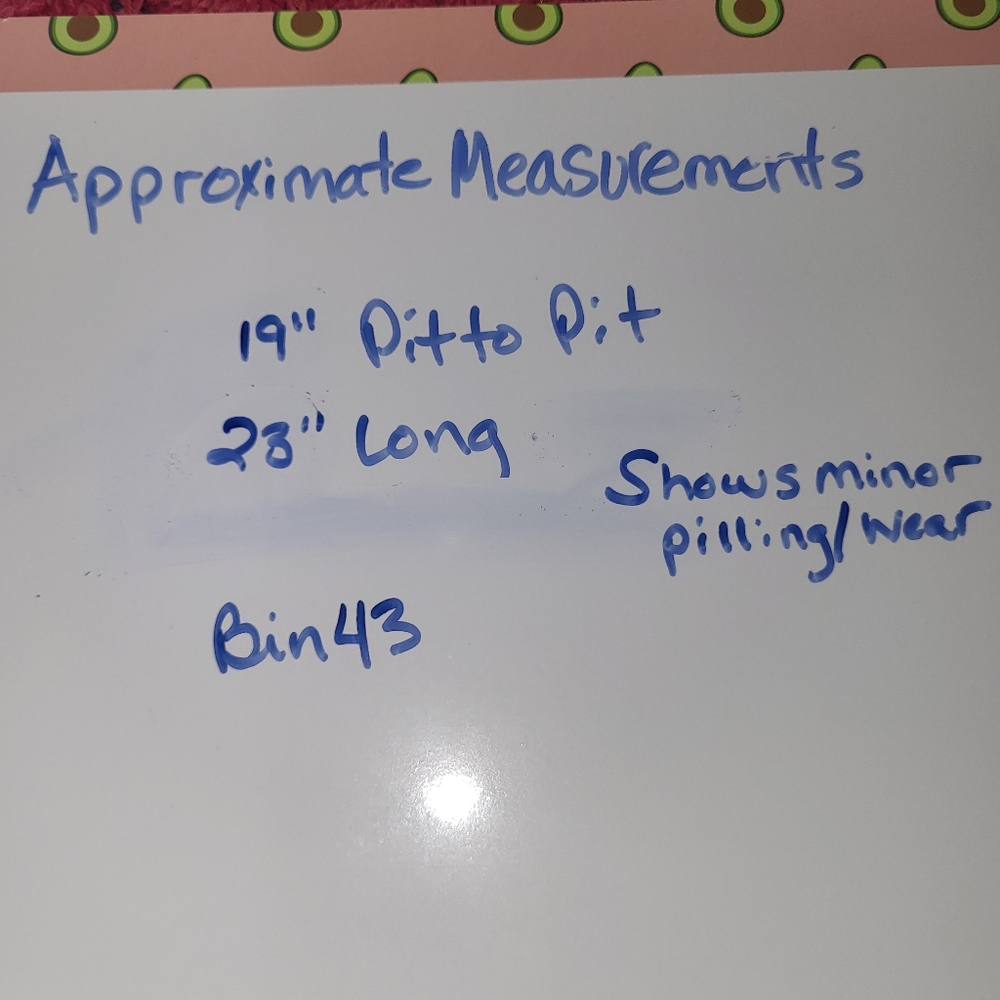 Approximate Measurements
19" Pit to Pit
23" Long
Shows minor
pilling/wear
Bin 43